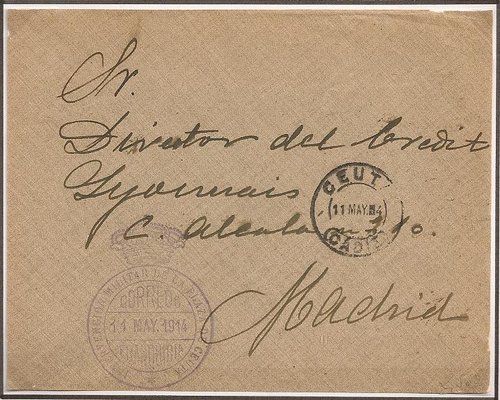 Sr.
Director del Credit
Lyonnais
C. Alcala n.º 10.
Madrid
CEUTA
11 MAY. 14
(CADIZ)
MILITAR DE LA PLAZA CEUTA
CORREOS
11 MAY. 1914